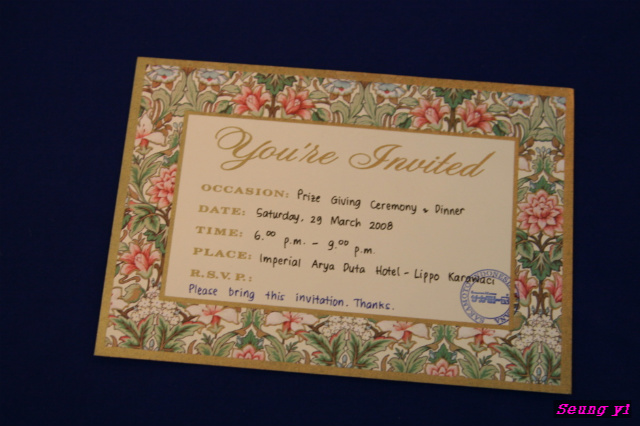 You're Invited
OCCASION: Prize Giving Ceremony & Dinner
DATE: Saturday, 29 March 2008
TIME: 6.00 p.m. - 9.00 p.m.
PLACE: Imperial Arya Duta Hotel - Lippo Karawaci
R.S.V.P.:
Please bring this invitation. Thanks.
Seung yi